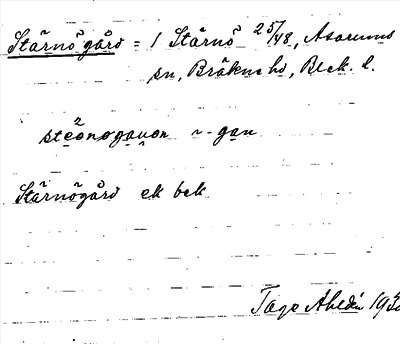 Stärnögård = 1 Stärnö 25/48, Asarums
sn, Bräkne hd, Blek. l.
Stärnögård ek bek
Tage Ahldén 193